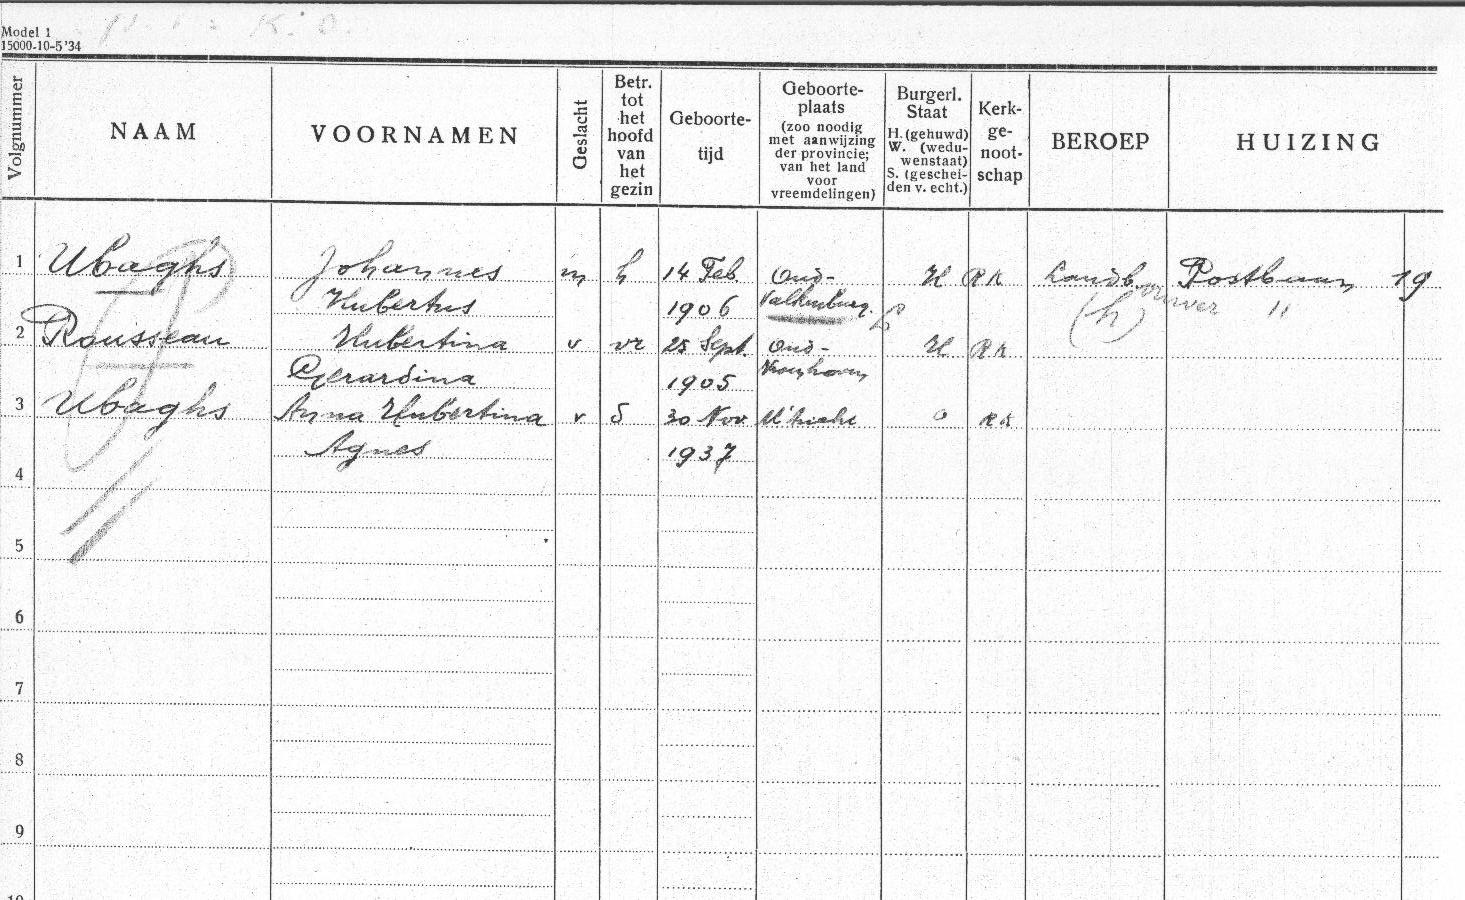 Model 1
15000-10-5'34
Volgnummer
NAAM
VOORNAMEN
Geslacht
Betr.
tot
het
hoofd
van
het
gezin
Geboorte-
tijd
Geboorte-
plaats
(zoo noodig
met aanwijzing
der provincie;
van het land
voor
vreemdelingen)
Burgerl.
Staat
H. (gehuwd)
W. (wedu-
wenstaat)
S. (geschei-
den v. echt.)
Kerk-
ge-
noot-
schap
BEROEP
HUIZING
1 Ubaghs Johannes m h 14 Feb. Oud- H RK Landb. Postbaan 19
Hubertus 1906 Valkenburg. (h) "
2 Rousseau Hubertina v vr 25 Sept. Oud- H RK
Gerardina 1905 Vroenhoven
3 Ubaghs Anna Hubertina v d 30 Nov. M'tricht o RK
Agnes 1937
4
5
6
7
8
9